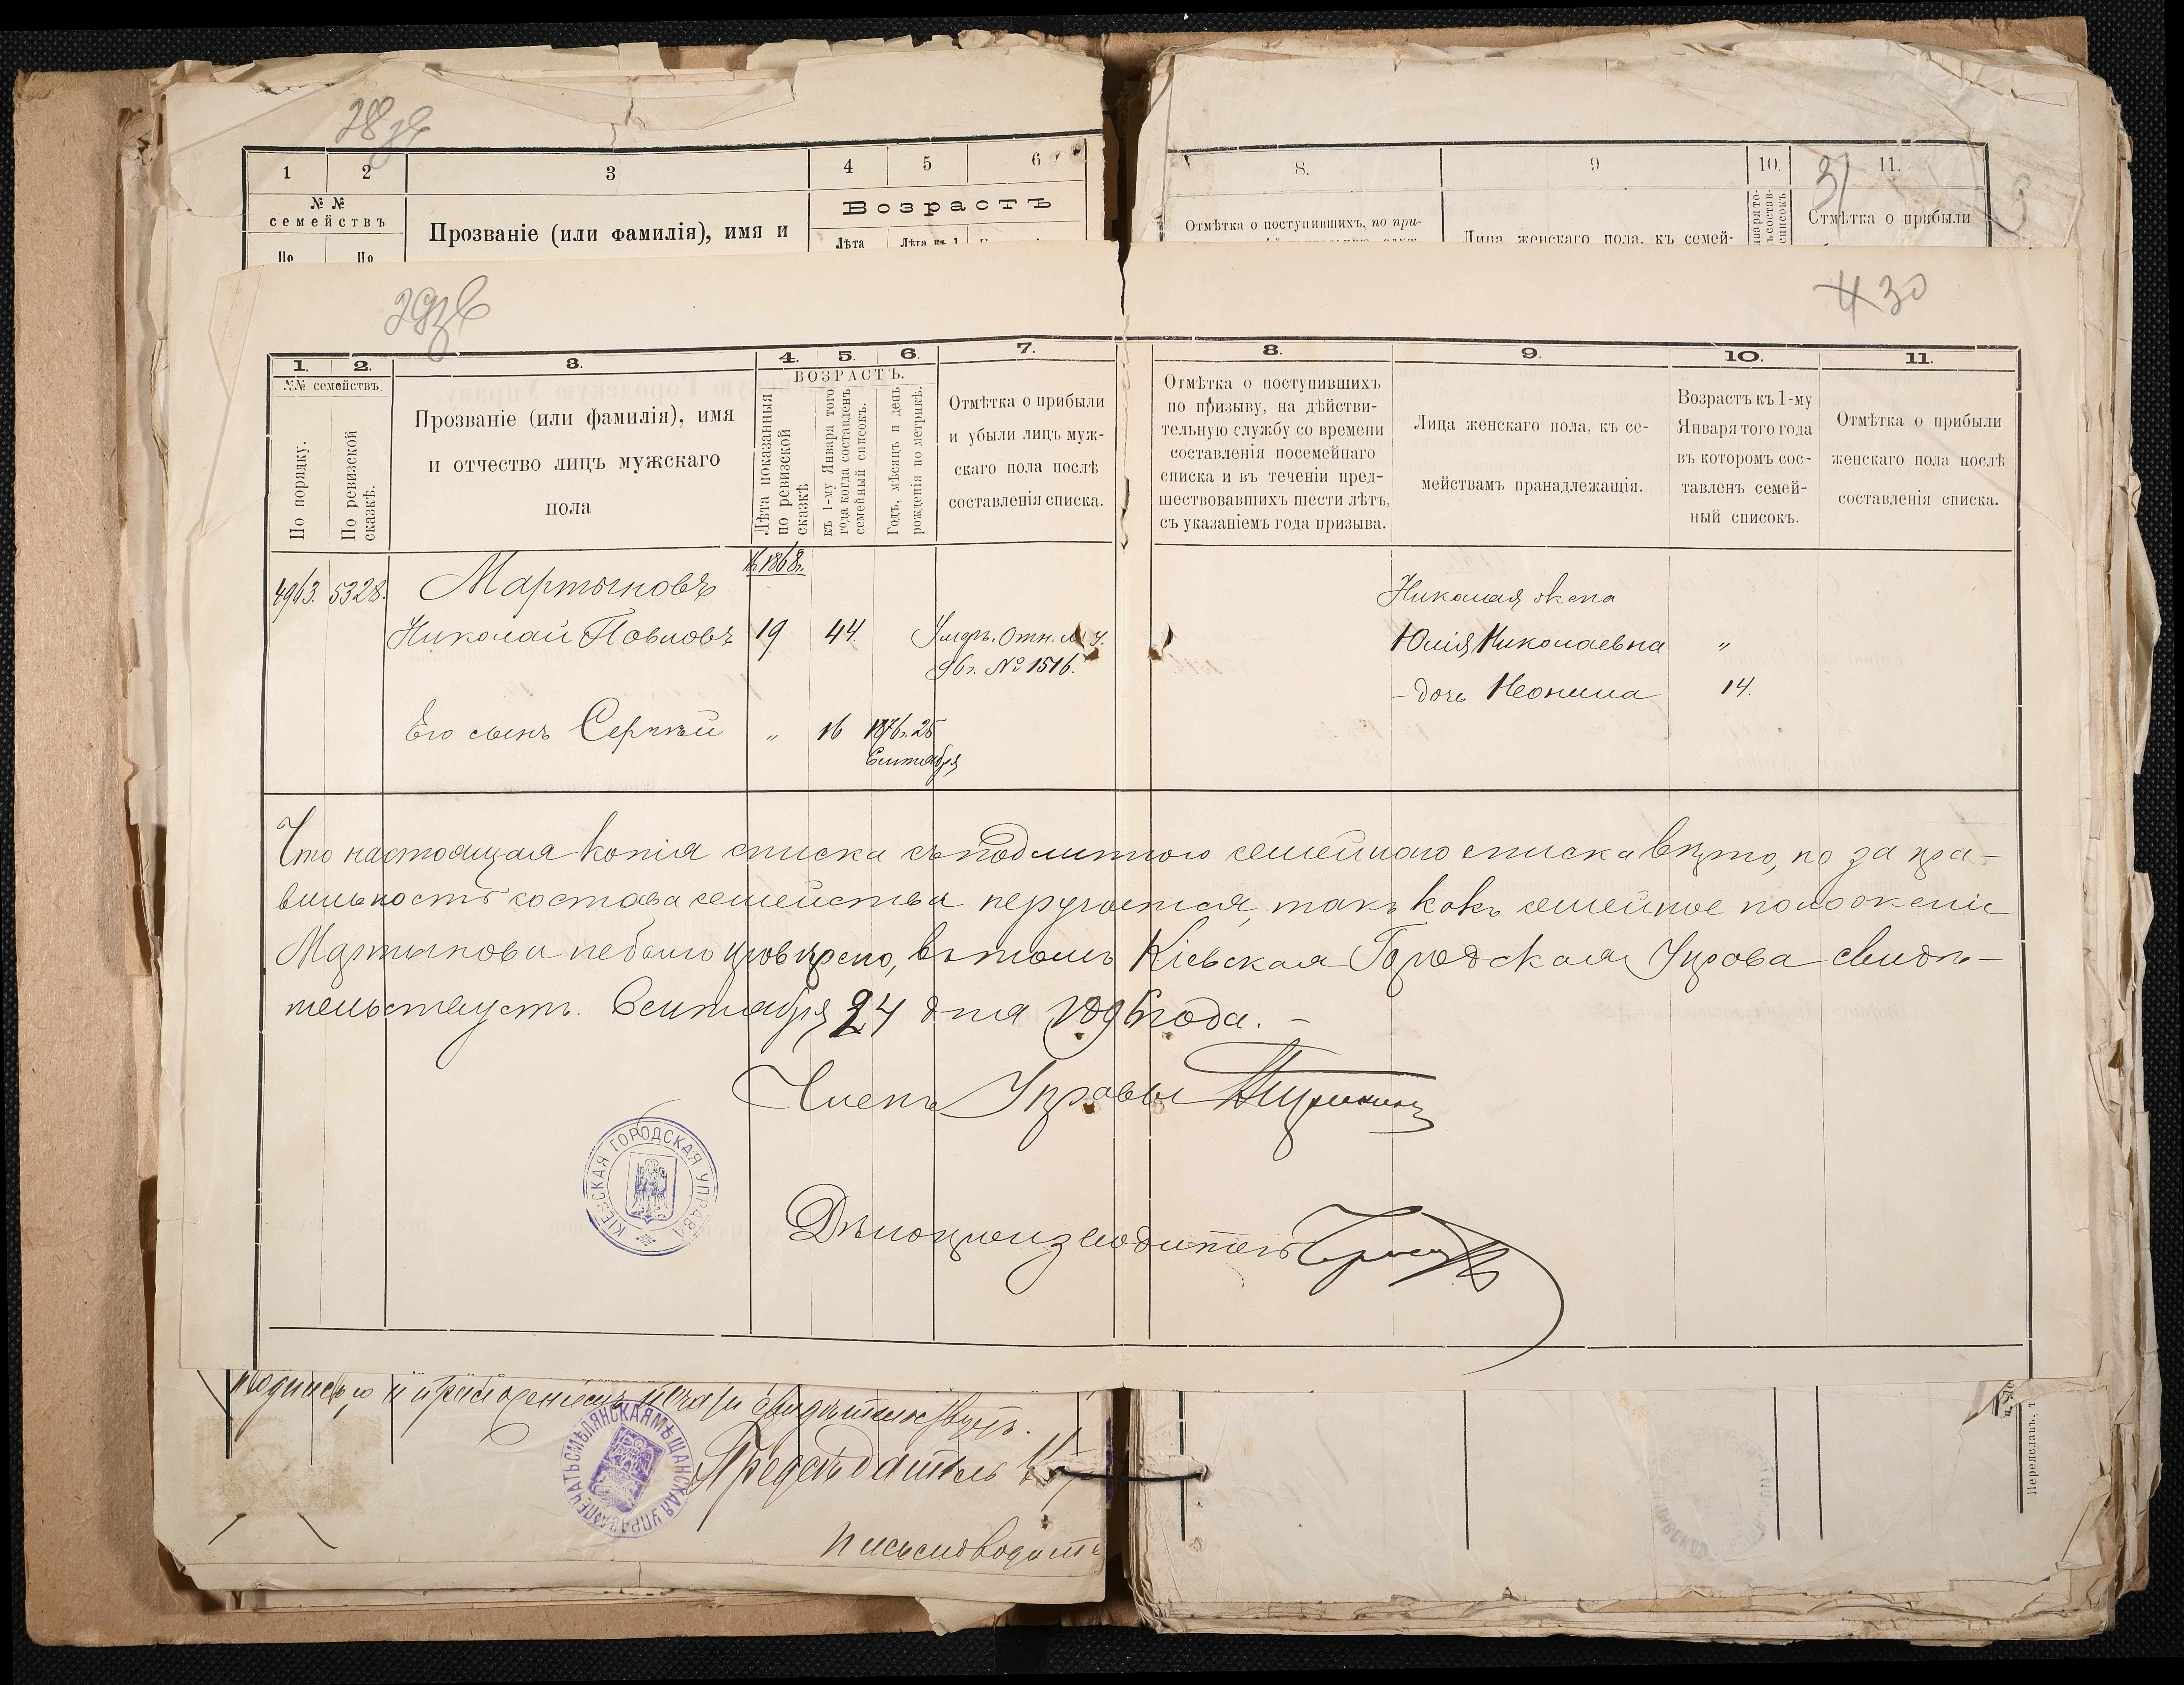 28зв
1 2 3 4 5 6
№ №
семействъ
Возрастъ
Прозваніе (или фамилія), имя и
Лѣта
По По
8. 9 10. 11.
31
Отмѣтка о поступившихъ, по при-
Лица женскаго пола, къ семей-
Отмѣтка о прибыли
29зв
4 30
1. 2. 3. 4. 5. 6. 7. 8. 9. 10. 11.
№№ семействъ.
По порядку.
По ревизской
сказкѣ.
Прозваніе (или фамилія), имя
и отчество лицъ мужскаго
пола
ВОЗРАСТЪ.
Лѣта показанныя
по ревизской
сказкѣ
къ 1-му Января того
года когда составленъ
семейный списокъ.
Годъ, мѣсяцъ и день
рожденія по метрикѣ.
Отмѣтка о прибыли
и убыли лицъ муж-
скаго пола послѣ
составленія списка.
Отмѣтка о поступившихъ
по призыву, на дѣйстви-
тельную службу со времени
составленія посемейнаго
списка и въ теченіи пред-
шествовавшихъ шести лѣтъ,
съ указаніемъ года призыва.
Лица женскаго пола, къ се-
мействамъ пранадлежащія.
Возрастъ къ 1-му
Января того года
въ которомъ сос-
тавленъ семей-
ный списокъ.
Отмѣтка о прибыли
женскаго пола послѣ
составленія списка.
1868г.
4963. 5328. Мартыновъ
Николай Павловъ 19 44. Умеръ. Отн.
96г. № 1516.
Его сынъ Сергѣй " 16 1876г. 25
Сентября
Николая жена
Юлія Николаевна "
– дочь Неонила 14.
Что настоящая копія списка съ подлиннаго семейнаго списка вѣрно, но за пра-
вильность состава семейства неручается, такъ какъ семейное положеніе
Мартынова небыло провѣрено, въ томъ Кіевская Городская Управа свидѣ-
тельствуетъ. Сентября 24 дня 1896 года. –
Членъ Управы
КІЕВСКАЯ ГОРОДСКАЯ УПРАВА
Дѣлопроизводитель
подписью и приложеніемъ печати свидѣтельствуетъ.
ПЕЧАТЬ СМѢЛЯНСКАЯ МѢЩАНСКАЯ УПРАВА
Предсѣдатель
Письмоводите
Переяславъ, т